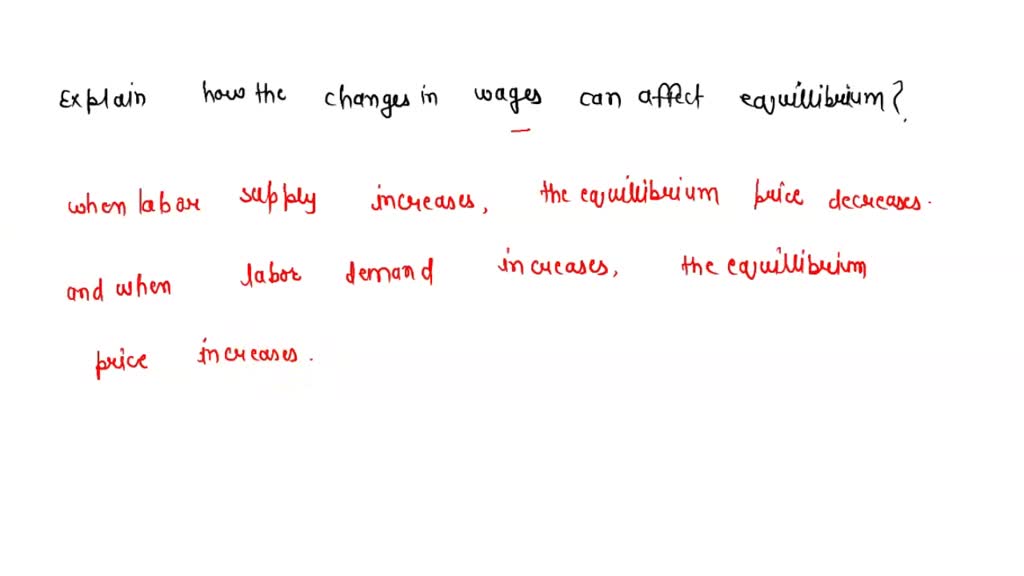 Explain how the changes in wages can affect equillibrium?
when labor supply increases, the equillibrium price decreases.
and when labor demand increases, the equillibrium
price increases.